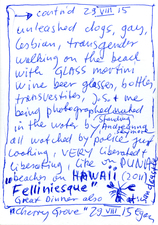 → contn'd 29 VIII 15
unleashed dogs, gays,
lesbian, transgender
walking on the beach
with glass martini
wine beer glasses, bottles,
transvestites, J.S. & me
being photographed nude
standing
in the water by
all watched by police just
looking, VERY liberated &
liberating like on DUNE
beaches on HAWAII (2011)
Felliniesque"
Great Dinner also at
"Cherry Grove" 29 VIII 15